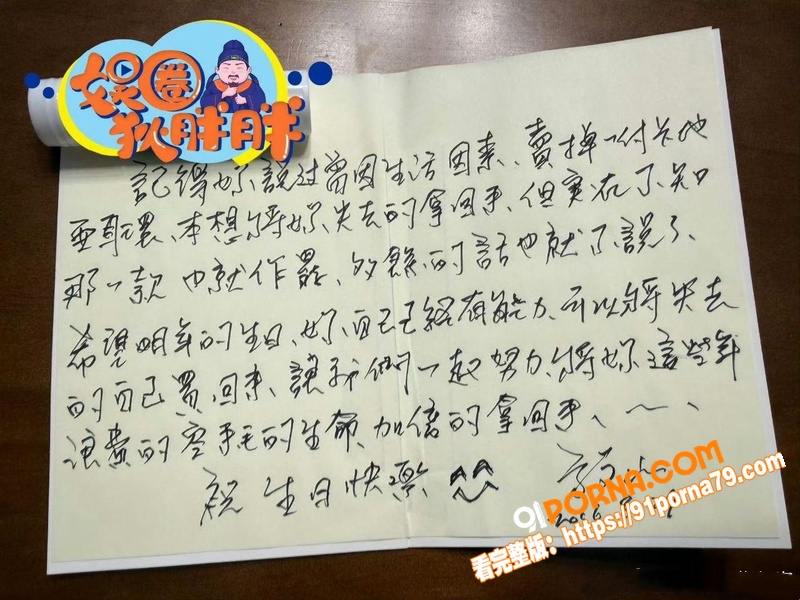 娱圈
狄胖胖
記得妳說過曾因生活因素、賣掉一付卡地
亞耳環、本想將妳失去的拿回來、但實在不知
那一款 也就作罷、多餘的話也就不說了、
希望明年的生日、妳自己已經有能力、可以將失去
的自己買回來、讓我們一起努力、將妳這些年
浪費的 的生命、加倍的拿回來、~、
祝 生日快樂 ^^
91PORNA.COM
看完整版：https://91porna79.com